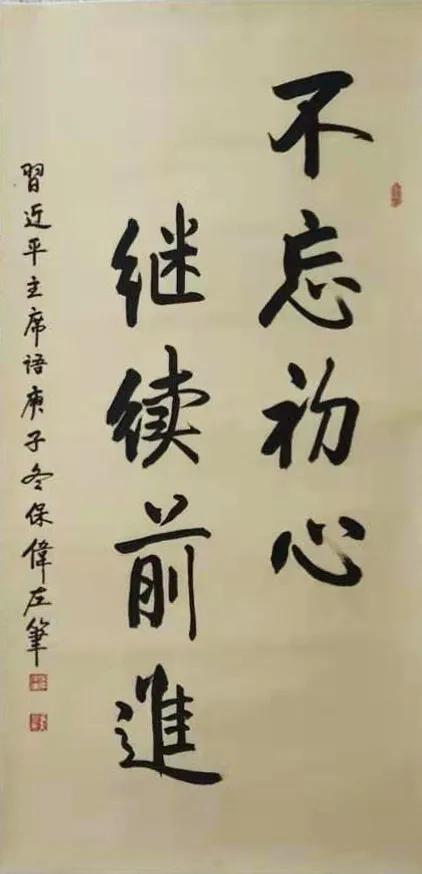 不忘初心
继续前進
習近平主席语庚子冬保偉左筆